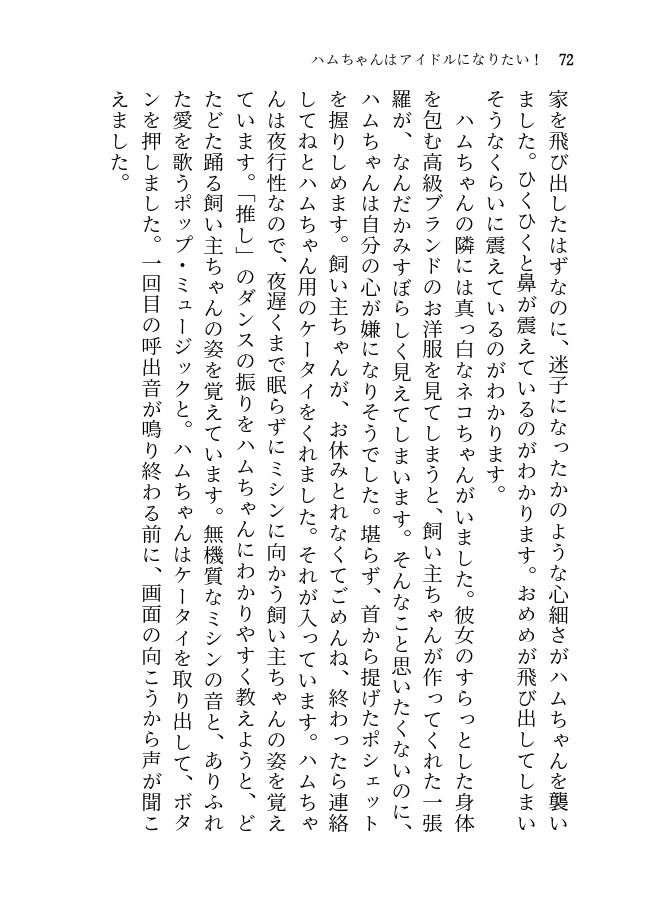 ハムちゃんはアイドルになりたい！ 72
家を飛び出したはずなのに、迷子になったかのような心細さがハムちゃんを襲い
ました。ひくひくと鼻が震えているのがわかります。おめめが飛び出してしまい
そうなくらいに震えているのがわかります。
　ハムちゃんの隣には真っ白なネコちゃんがいました。彼女のすらっとした身体
を包む高級ブランドのお洋服を見てしまうと、飼い主ちゃんが作ってくれた一張
羅が、なんだかみすぼらしく見えてしまいます。そんなこと思いたくないのに、
ハムちゃんは自分の心が嫌になりそうでした。堪らず、首から提げたポシェット
を握りしめます。飼い主ちゃんが、お休みとれなくてごめんね、終わったら連絡
してねとハムちゃん用のケータイをくれました。それが入っています。ハムちゃ
んは夜行性なので、夜遅くまで眠らずにミシンに向かう飼い主ちゃんの姿を覚え
ています。「推し」のダンスの振りをハムちゃんにわかりやすく教えようと、ど
たどた踊る飼い主ちゃんの姿を覚えています。無機質なミシンの音と、ありふれ
た愛を歌うポップ・ミュージックと。ハムちゃんはケータイを取り出して、ボタ
ンを押しました。一回目の呼出音が鳴り終わる前に、画面の向こうから声が聞こ
えました。